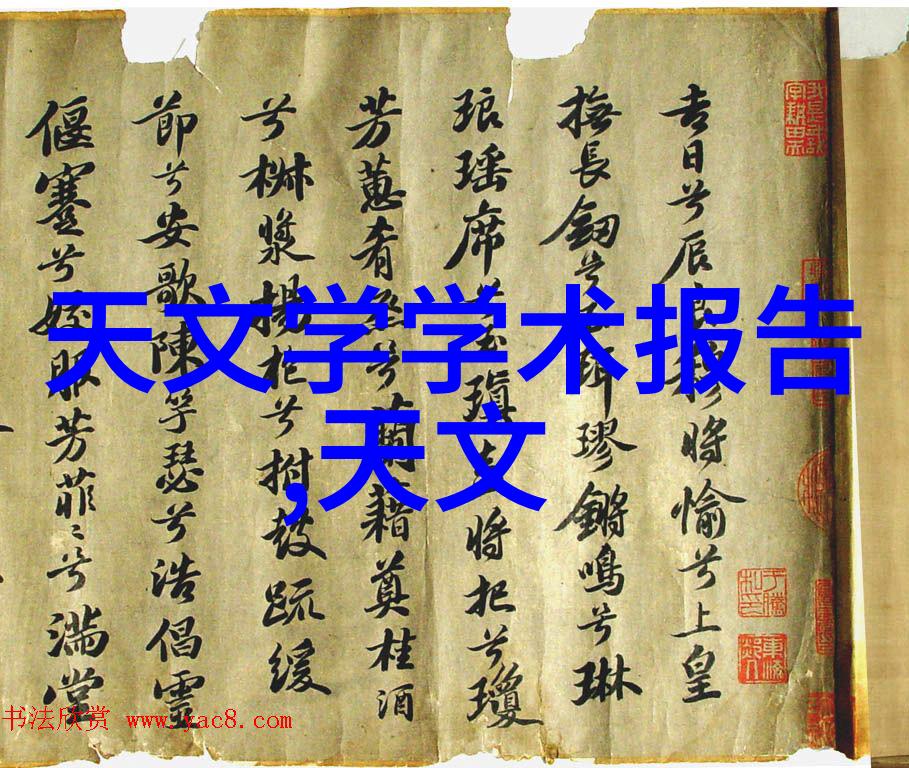 吉日兮辰良穆將愉兮上皇
撫長劒兮玉珥璆鏘鳴兮琳
琅瑶席兮玉瑱盍將把兮瓊
芳蕙肴烝兮蘭藉奠桂酒
兮椒漿揚枹兮拊鼓疏緩
節兮安歌陳竽瑟兮浩倡靈
偃蹇兮姣服芳菲々兮滿堂
天文学学术报告
,天文
书法欣赏 www.yac8.com